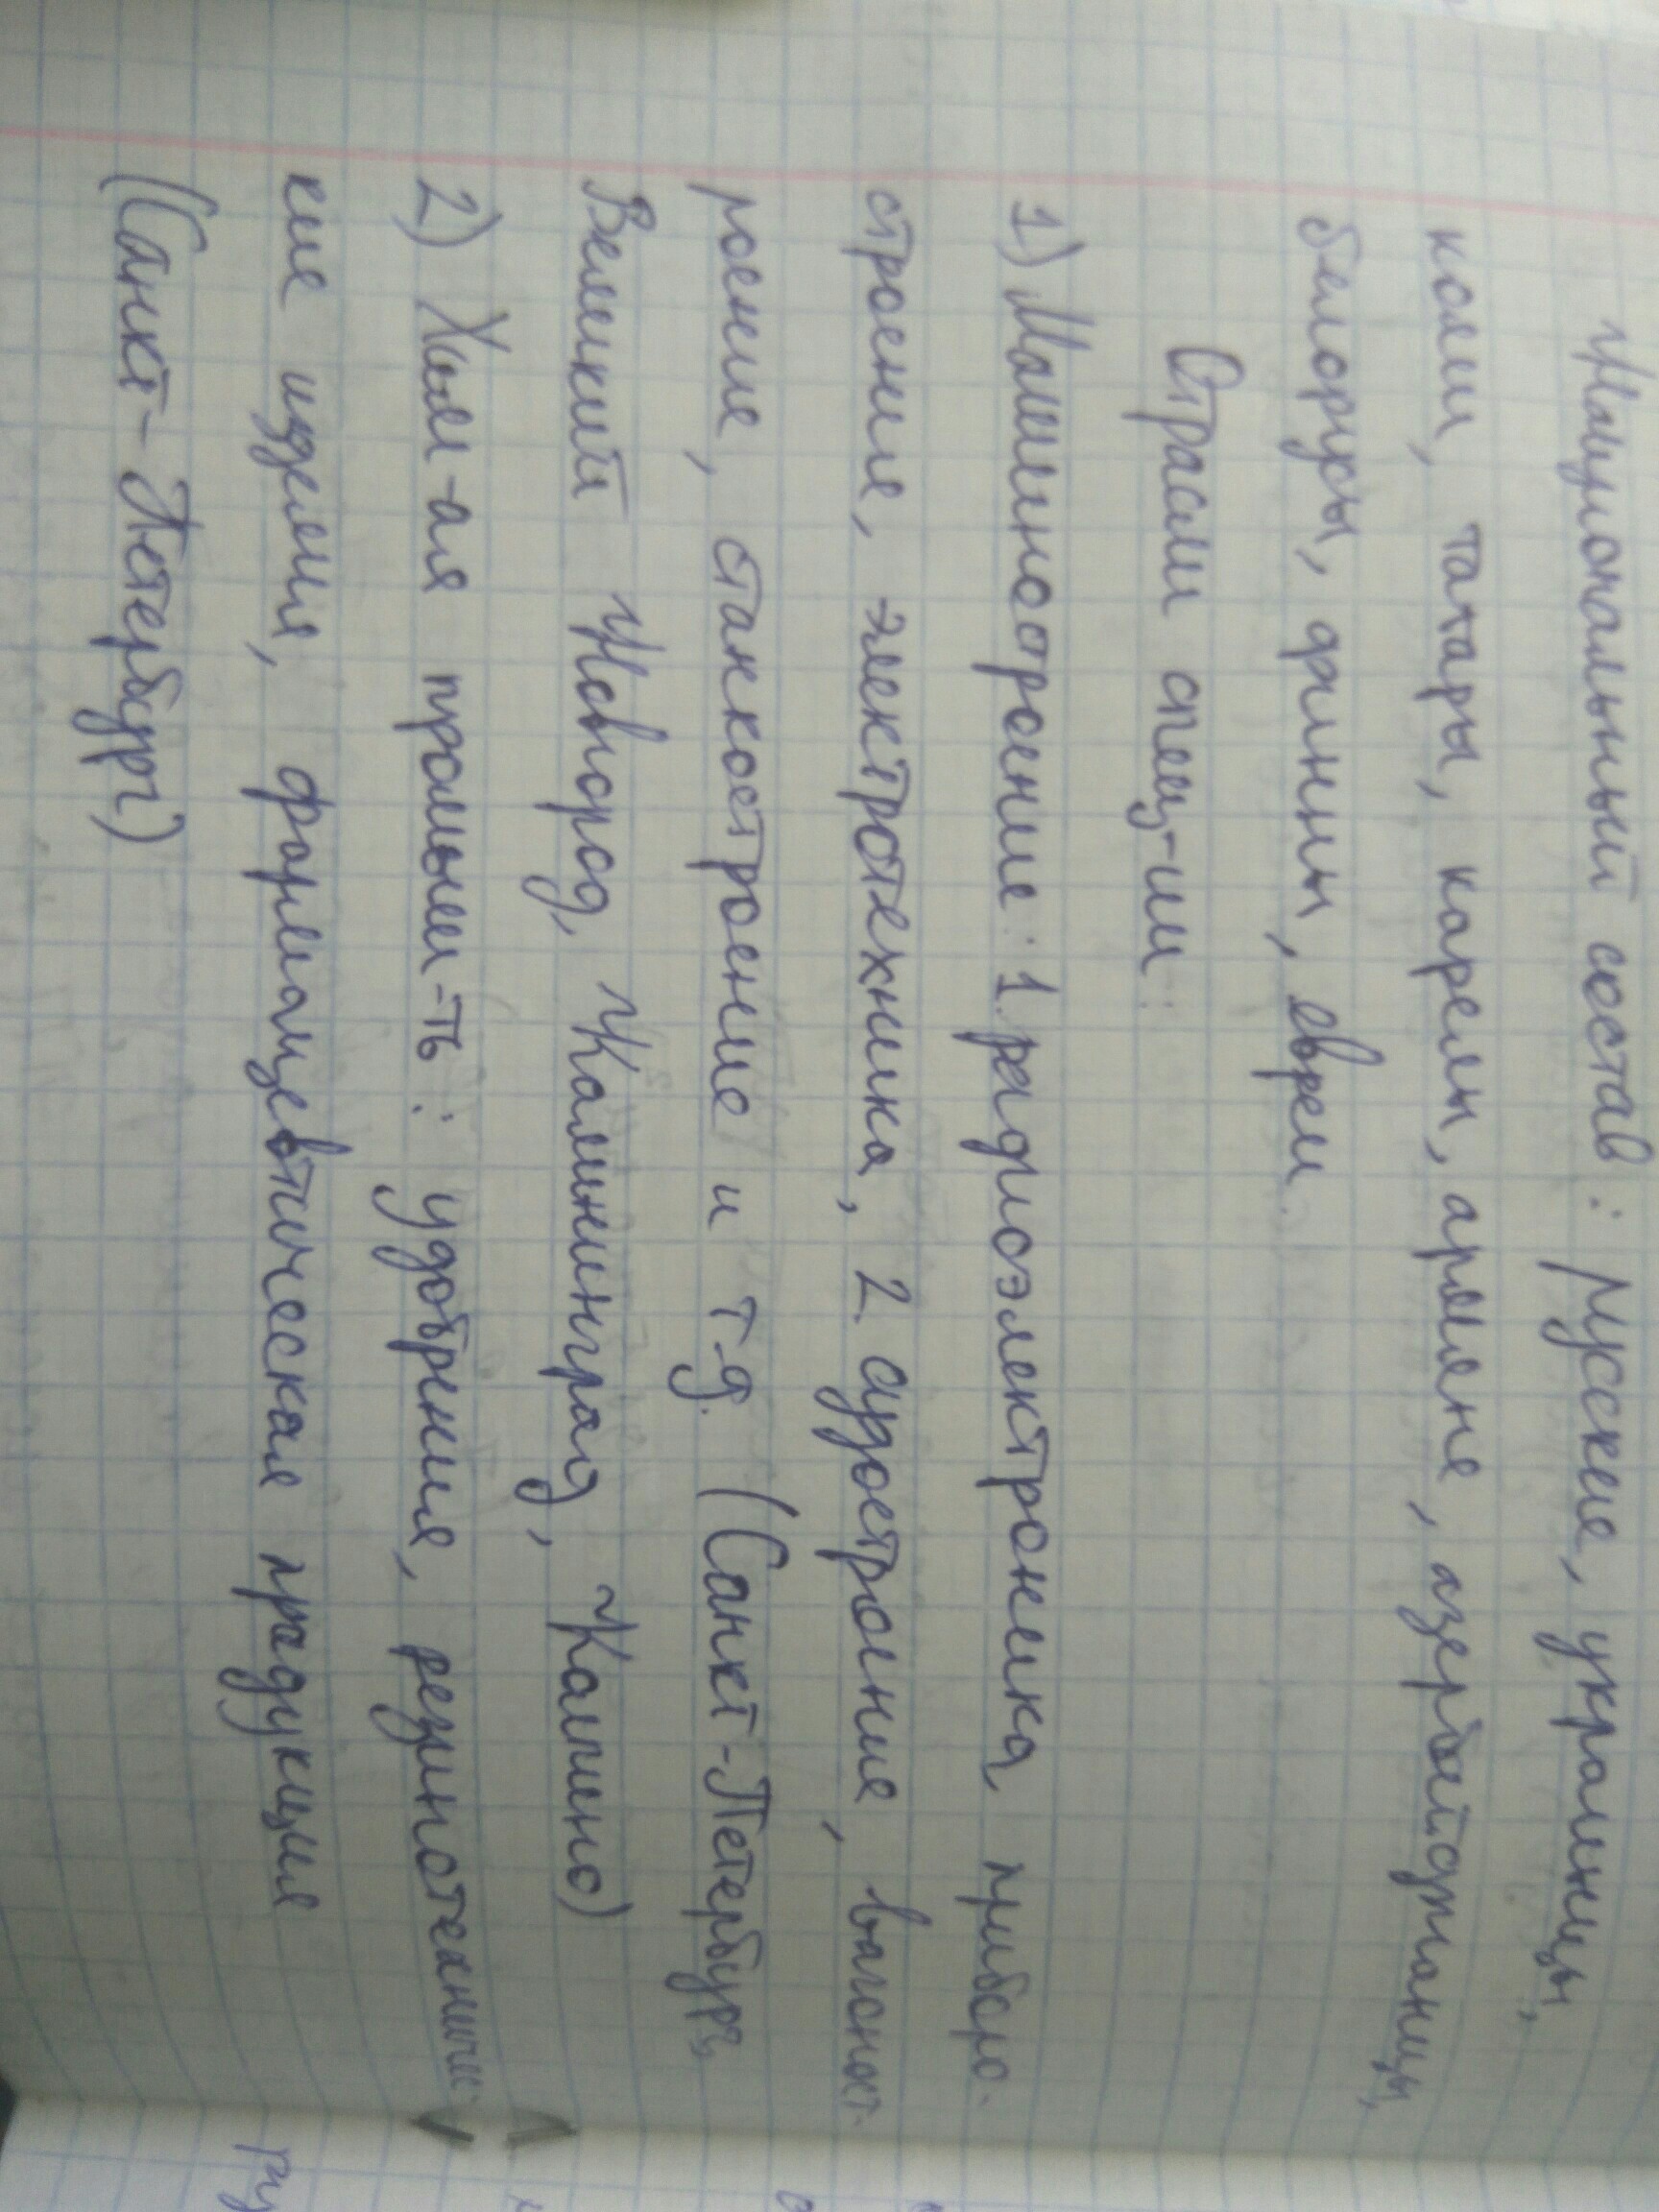 Национальный состав: Русские, украинцы,
коми, татары, карелы, армяне, азербайджанцы,
белорусы, финны, евреи.
Отрасли спец-ии:
1) Машиностроение: 1. радиоэлектроника, приборо-
строение, электротехника, 2. судостроение, вагоност-
роение, станкостроение и т.д. (Санкт-Петербург,
Великий Новгород, Калининград, Калино)
2) Хим-ая промыш-ть: удобрения, резинотехничес-
кие изделия, фармацевтическая продукция
(Санкт-Петербург)